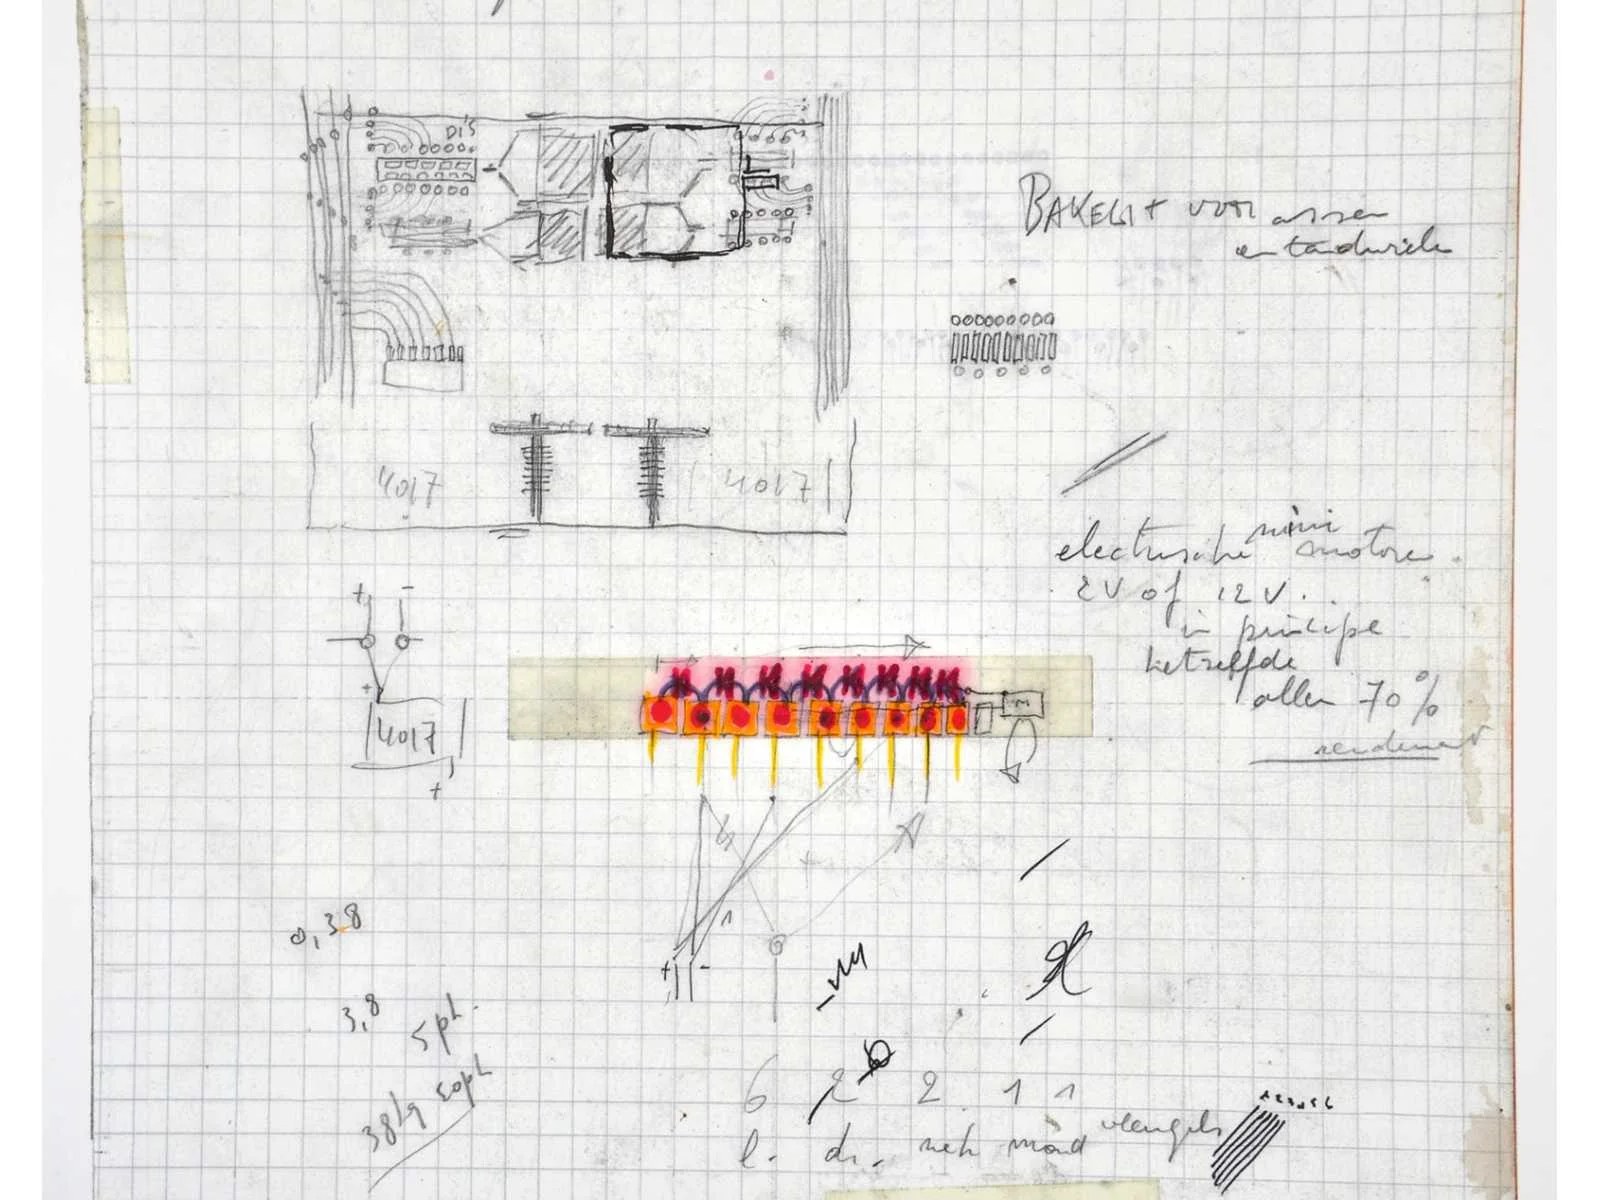 DI'S
BAKELIT voor assen
en tandwiele
4017
4017
electrische mini motore
2V of 12V.
in principe
betreffde
allen 70%
rendement
+ -
+
4017
+
M
+ -
0,38
3,8
5 pl.
38kg 50pl
6 2 2 1 1
l. di. neh mond vleugels